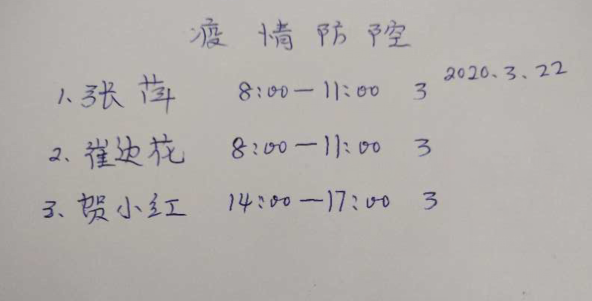 疫情防控
2020.3.22
1、张萍 8:00—11:00 3
2、崔边花 8:00—11:00 3
3、贺小红 14:00—17:00 3